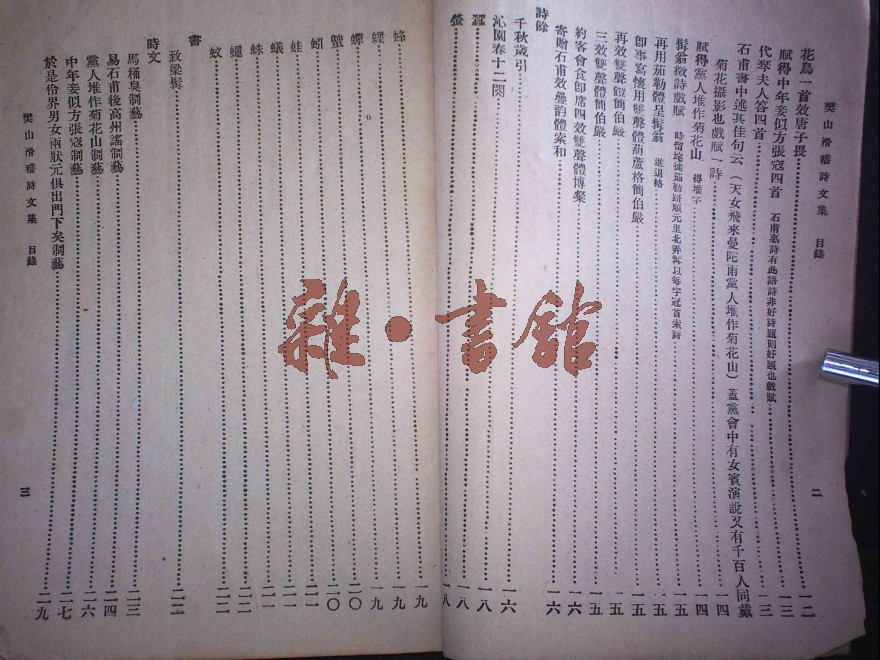 樊山滑稽詩文集 目錄
二
花鳥一首效唐子畏 一二
賦得中年妾似方張寇四首 石甫惠詩有此語詩非好詩題則好題也戲賦 一三
代琴夫人答四首 一三
石甫書中述其佳句云(天女飛來曼陀雨黨人堆作菊花山)蓋黨會中有女賓演說又有千百人同戴
菊花攝影也戲賦一詩 一四
賦得黨人堆作菊花山 得堆字 一四
髯翁徵詩戲賦 一五
再用茄勒體呈髯翁 進退格 一五
卽事寫懷用雙聲體葫蘆格簡伯嚴 一五
再效雙聲體簡伯嚴 一五
三效雙聲體簡伯嚴 一五
約客會食卽席四效雙聲體博粲 一六
寄贈石甫效疊韵體索和 一六
詩餘
千秋歲引 一六
沁園春十二闋
蠶 一八
螢 一八
蜂 一九
蝶 一九
蟬 一九
蟹 二〇
蚓 二〇
蛙 二一
蟻 二一
蛛 二一
蠅 二二
蚊 二二
書
致梁髯 二二
時文
馬桶臭制藝 二三
易石甫後高州謠制藝 二四
黨人堆作菊花山制藝 二六
中年妾似方張寇制藝 二七
於是伶界男女兩狀元俱出門下矣制藝 二九
樊山滑稽詩文集 目錄
三
雜·書館